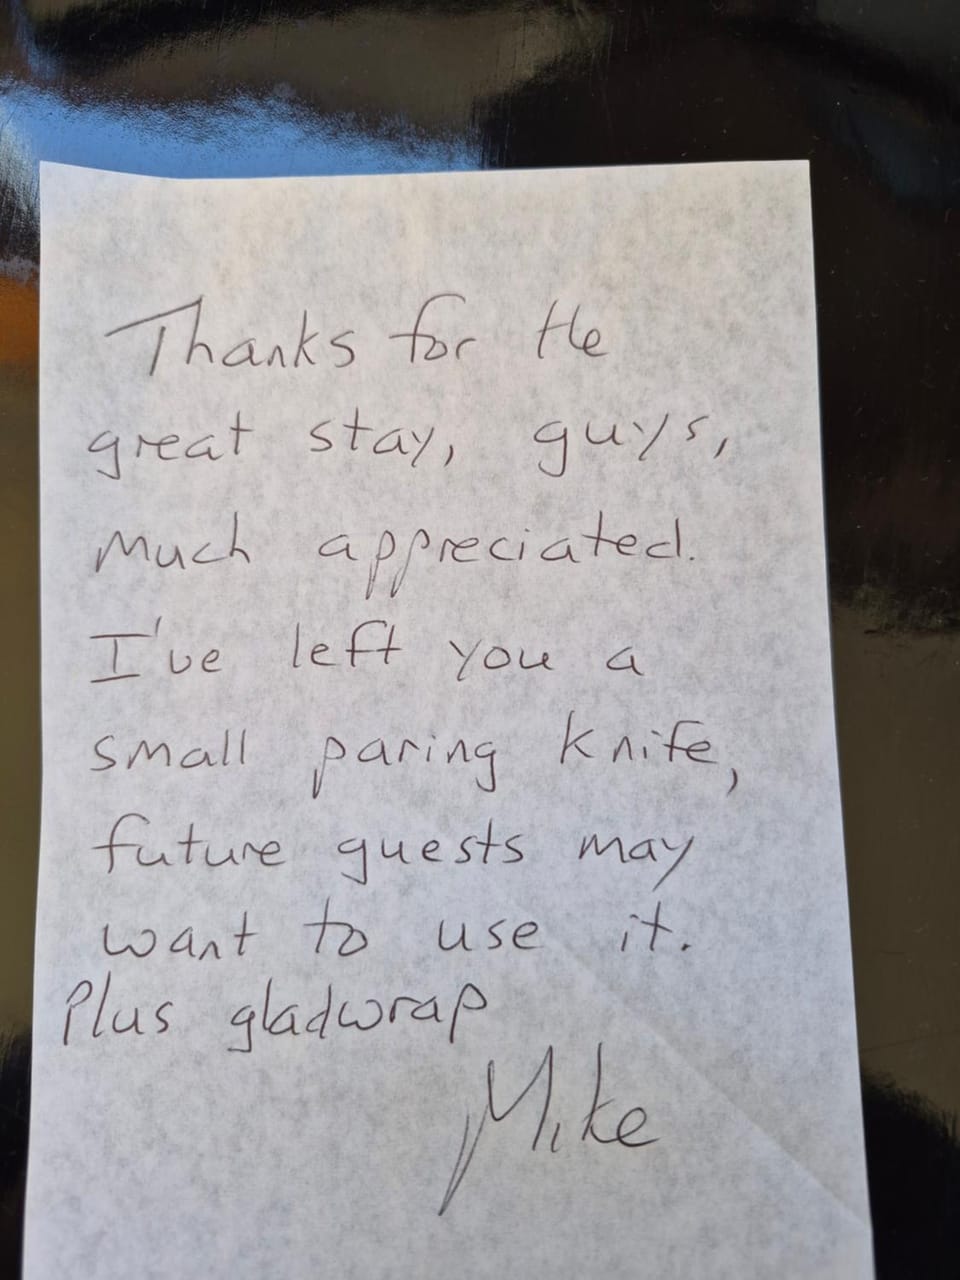 Thanks for the
great stay, guys,
much appreciated.
I've left you a
small paring knife,
future guests may
want to use it.
Plus gladwrap
Mike